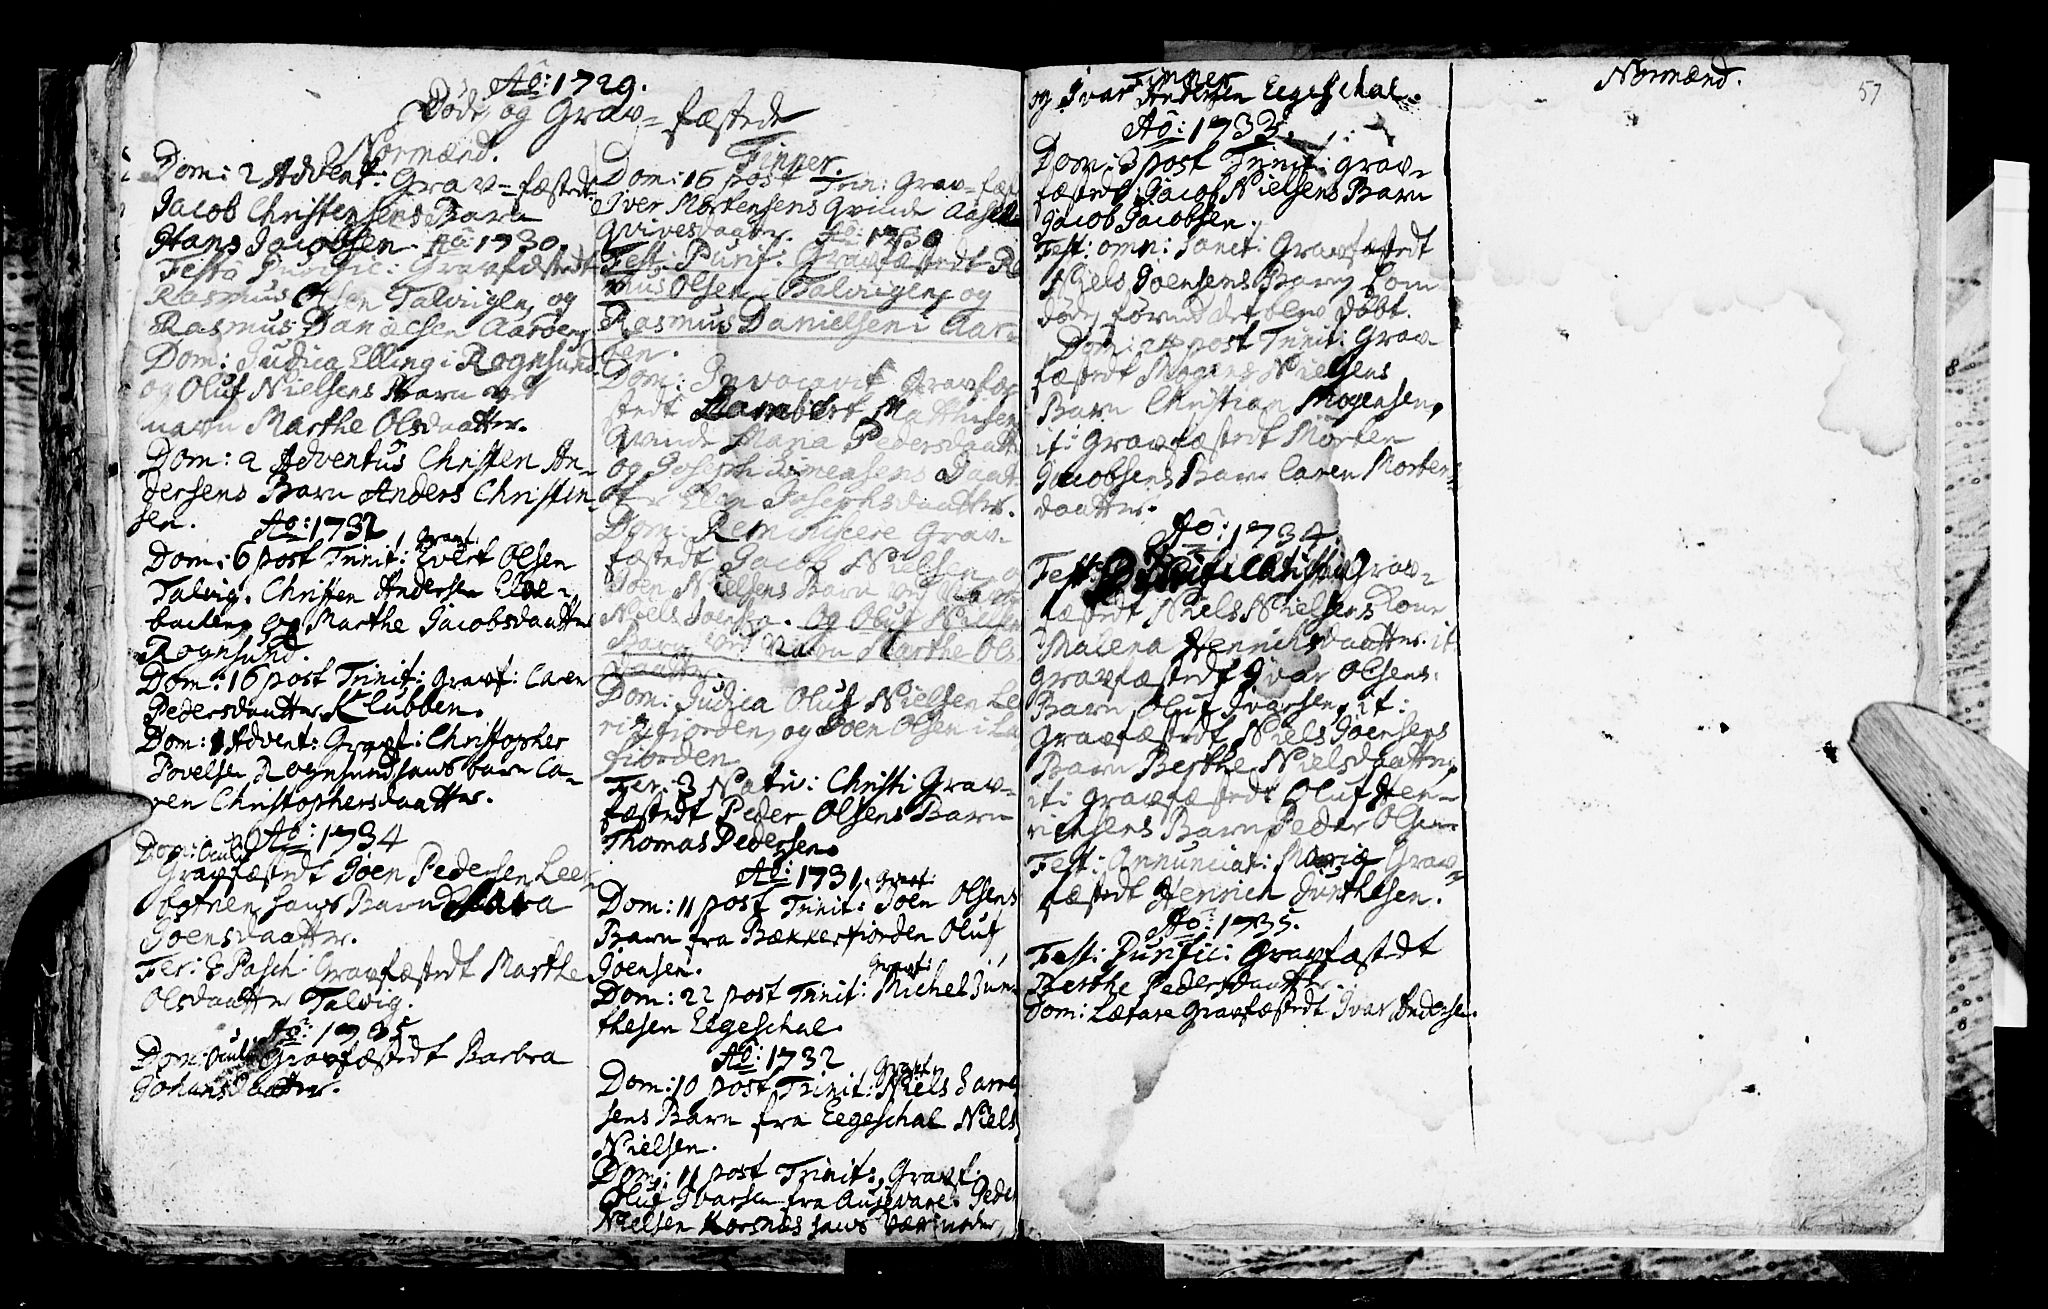 Aō: 1729.
Døde og Grav-fæstede
Normænd.
Dom: 2 Advent: Grav-fæstedt
Jacob Christensens Barn
Hans Jacobsen. Aō: 1730.
Festo Purific: Gravfæstedt
Rasmus Olsen Talvigen, og
Rasmus Danielsen Aaröen
Dom: Judica Elling i Rognsund
og Oluf Nielsens Barn ved
navn Marthe Olsdaatter.
Dom: 2 Adventus Christen An-
dersens Barn Anders Christen-
sen. Aō: 1732
Dom: 6 post Trinit: Gravf: Evert Olsen
Talvig. Christen Andersen
og Marthe Jacobsdaatter
Rognsund.
Dom: 16 post Trinit: Gravf: Caren
Pedersdaatter Klubben.
Dom: 1 Advent: Gravf: Christopher
Povelsen Rognsund hans barn Ca-
ren Christophersdaatter.
Aō: 1734
Dom: Oculi
Gravfæstedt Joen Pedersen
hans Barn
Joensdaatter.
Fer: 3 Pasch: Gravfæstedt Marthe
Olsdaatter Talvig.
Aō: 1735
Dom: Oculi Gravfæstedt Barbra
Johansdaatter.
Finner.
Dom: 16 post Trin: Grav-fæs
Iver Mortensens Qvinde
Aō: 1730
Fest: Purif: Gravfæstedt Ras
mus Olsen i Talvigen, og
Rasmus Danielsen i Aar-
öen.
Dom: Invocavit Gravfæ
stedt Lambert Matthisens
Qvinde Maria Pedersdaatter
og Joseph Simensens Daat
ter Elen Josephsdaatter.
Dom: Reminiscere Grav-
fæstedt Jacob Nielsen, o
Joen Nielsens Barn ved Navn
Niels Joensen. Og Oluf Nielsens
Barn ved Navn Marthe Ols
daatter.
Dom: Judica Oluf Nielsen Le
risfiorden, og Joen Olsen i La
fiorden
Fer: 3 Nativ: Christi Grav-
fæstedt Peder Olsens Barn
Thomas Pedersen.
Aō: 1731.
Dom: 11 post Trinit: Gravf: Joen Olsens
Barn fra Bekkerfiorden Oluf
Joensen.
Dom: 22 post Trinit: Gravf: Michel Jün-
thesen Eegeschal.
Aō: 1732
Dom: 10 post Trinit: Gravf: Niels Larre
sens Barn fra Eegeschal Niels
Nielsen.
Dom: 11 post Trinit: Gravf:
Oluf Ivarsen fra Peder
Nielsen Korsnæs hans
Finner
og Ivar Andersen Eegeschal.
Aō: 1733.
Dom: 3 post Trinit: grav-
fæstedt Jacob Nielsens Barn
Jacob Jacobsen.
Fest: omn: Sanct: Gravfæstedt
Niels Joensens Barn, som
døde, førend det blev døbt.
Dom: post Trinit: Grav-
fæstedt Mogens Nielsens
Barn Christian Mogensen,
it: gravfæstedt Morten
Jacobsens Barn Caren Mortens-
daatter.
Aō: 1734.
Fest: Purificationis Grav-
fæstedt Niels Nielsens Kone
Malena Henrichsdaatter. it
gravfæstedt Ivar Olsens
Barn Oluf Ivarsen, it:
Gravfæstedt Niels Joensens
Barn Berthe Nielsdaatter,
it: gravfæstedt Oluf Hen-
richsens Barn Peder Olsen
Fest: Annunciat: Mariæ Grav-
fæstedt Henrich Jünthesen.
Aō: 1735.
Fest: Purific: Gravfæstedt
Berthe Pedersdaatter.
Dom: Lætare gravfæstedt Ivar Andersen.
Normænd.
57